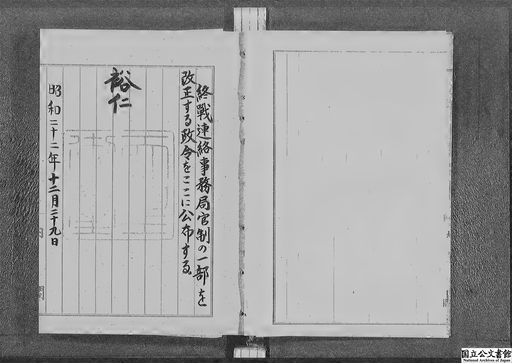 終戰連絡事務局官制の一部を
改正する政令をここに公布する。
裕仁
昭和二十二年十二月二十九日
国立公文書館
National Archives of Japan